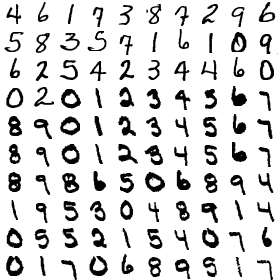 4 6 1 7 3 8 7 2 9 6
5 8 3 5 7 1 6 1 0 9
6 2 5 4 2 3 4 4 6 0
0 2 0 1 2 3 4 5 6 7
8 9 0 1 2 3 4 5 6 7
8 9 0 1 2 8 4 5 6 7
8 9 8 6 5 0 6 8 9 4
1 9 5 3 0 4 8 9 1 4
0 5 5 2 1 5 4 0 7 6
0 1 7 0 6 8 9 5 1 7